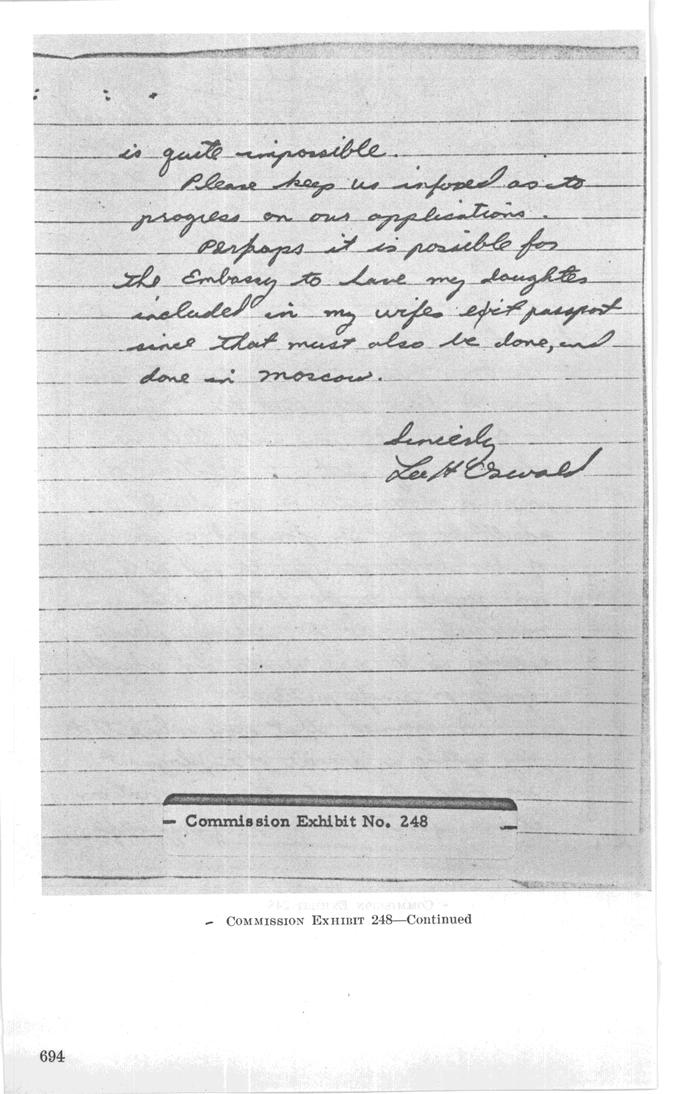 is quite impossible.
Please keep us infoxed as to
progress on our applications.
Perhaps it is possible for
the Embassy to have my daughter
included in my wifes exit passport
since that must also be done, and
done in Moscow.
Sincierly
Lee H Oswald
- Commission Exhibit No. 248 -
- COMMISSION EXHIBIT 248—Continued
694